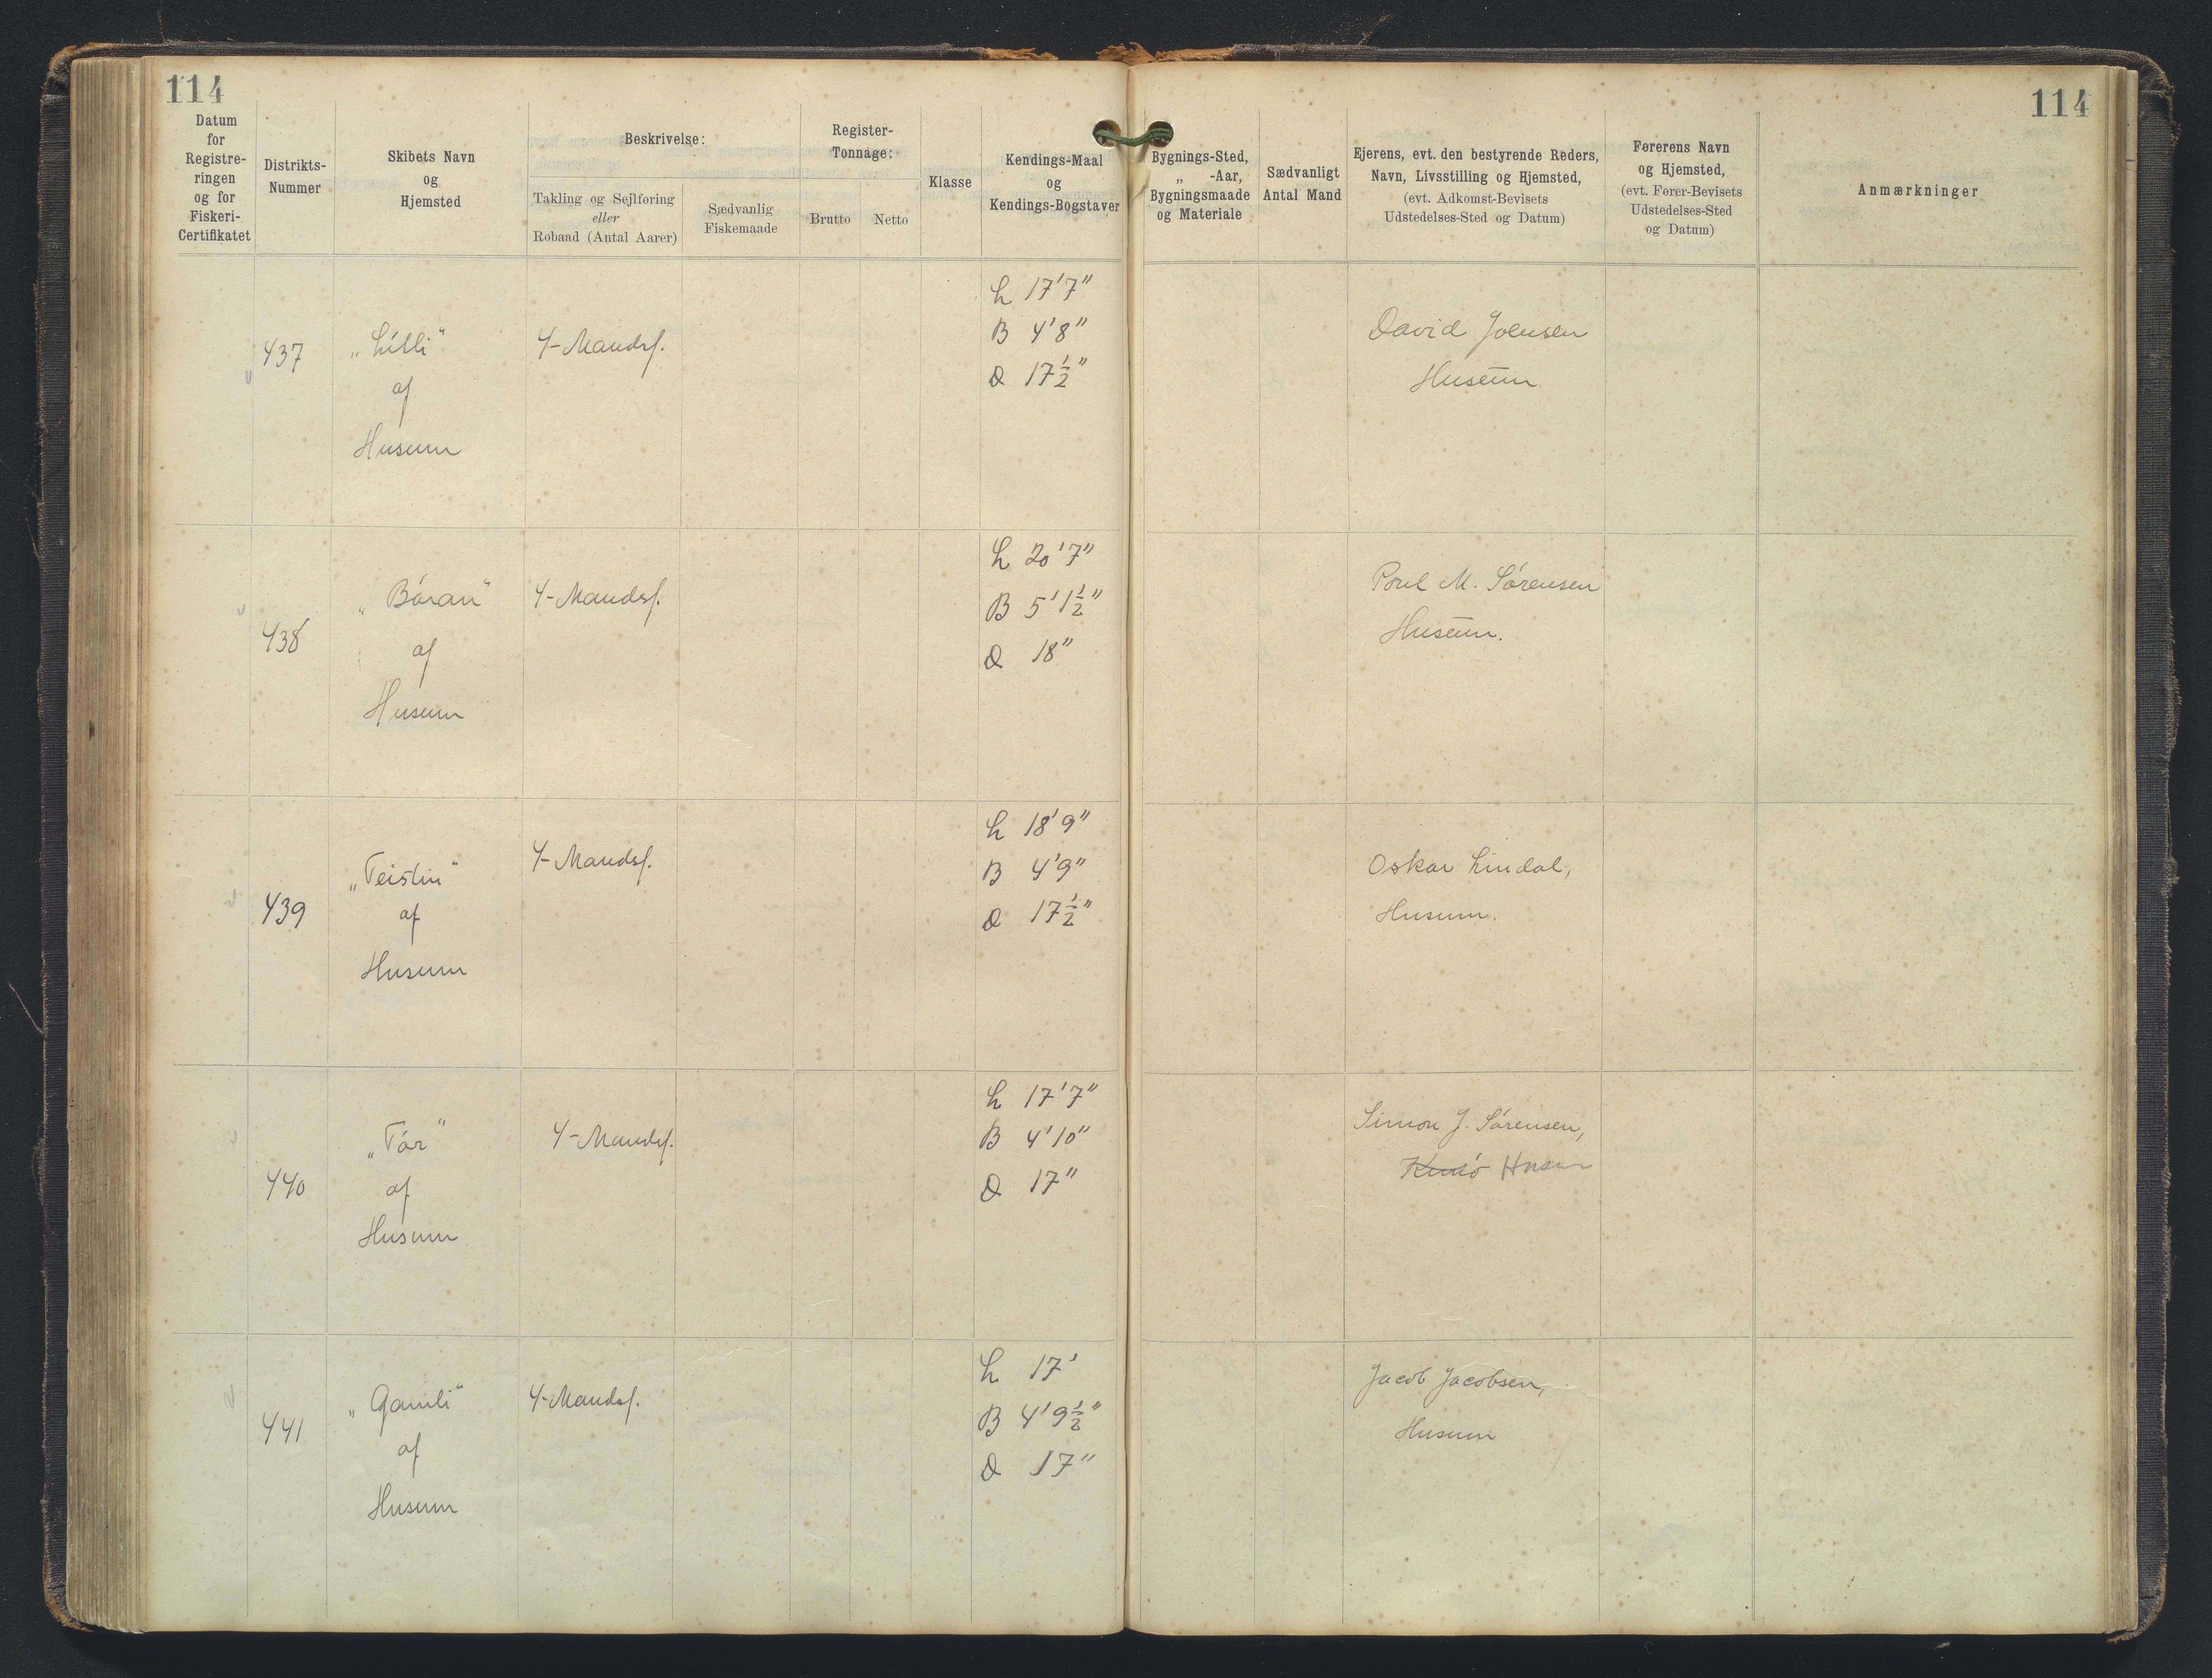 114
114
Datum
for
Registre-
ringen
og for
Fiskeri-
Certifikatet
Distrikts-
Nummer
Skibets Navn
og
Hjemsted
Beskrivelse:
Takling og Sejlføring
eller
Robaad (Antal Aarer)
Sædvanlig
Fiskemaade
Register-
Tonnage:
Brutto
Netto
Klasse
Kendings-Maal
og
Kendings-Bogstaver
Bygnings-Sted,
„ -Aar,
Bygningsmaade
og Materiale
Sædvanligt
Antal Mand
Ejerens, evt. den bestyrende Reders,
Navn, Livsstilling og Hjemsted,
(evt. Adkomst-Bevisets
Udstedelses-Sted og Datum)
Førerens Navn
og Hjemsted,
(evt. Fører-Bevisets
Udstedelses-Sted
og Datum)
Anmærkninger
437
„Lítli"
af
Husum
4-Mandsf.
L 17'7"
B 4'8"
D 17½"
David Joensen
Husum
438
„Báran"
af
Husum
4-Mandsf.
L 20'7"
B 5'1½"
D 18"
Poul M. Sørensen
Husum.
439
„Teistin"
af
Husum
4-Mandsf.
L 18'9"
B 4'9"
D 17½"
Oskar Lindal,
Husum.
440
„Tór"
af
Husum
4-Mandsf.
L 17'7"
B 4'10"
D 17"
Simon J. Sørensen,
Husum
441
„Gamli"
af
Husum
4-Mandsf.
L 17'
B 4'9½"
D 17"
Jacob Jacobsen,
Husum